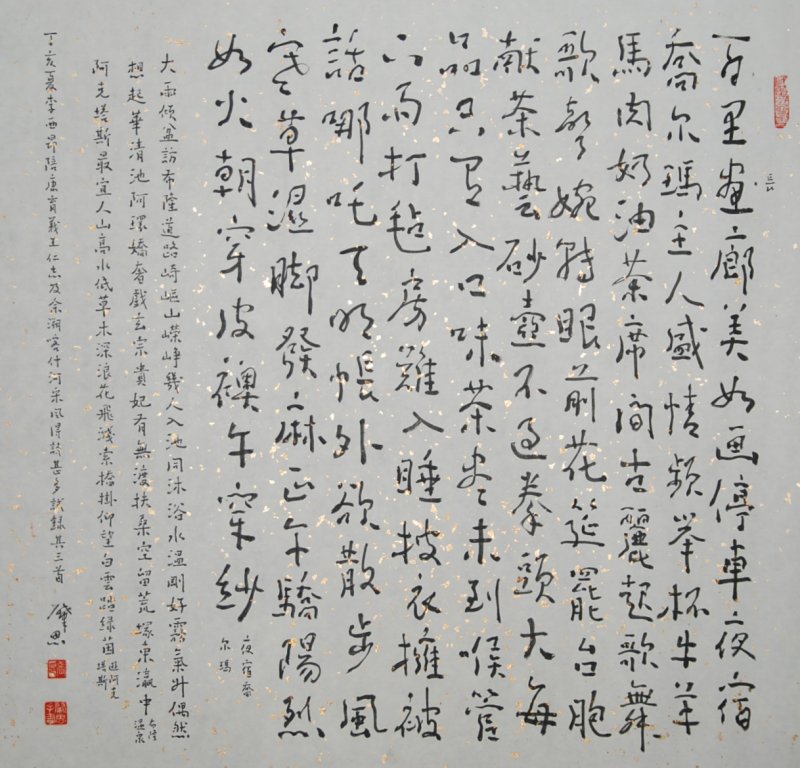 百里畫廊美如画停車夜宿
喬尔瑪主人盛情頻举杯牛羊
馬肉奶油茶席間古麗起歌舞
歌声婉轉眼前花筵罷台胞
献茶藝砂壺不过拳頭大每
品只有入口味茶尽未到喉管
下雨打毡房難入睡披衣擁被
話哪吒天明帐外欲散步風
寒草濕脚發麻正午驕陽烈
如火朝穿皮襖午穿紗
夜宿喬
尔瑪
大雨傾盆訪布隆道路崎嶇山嶸崢幾人入池同沐浴水温剛好霧氣升偶然
想起華清池阿環嬌奢戲玄宗貴妃有無渡扶桑空留荒塚東瀛中
布隆
温泉
阿克塔斯最宜人山高水低草木深浪花飛濺索橋掛仰望白雲踏绿茵
遊阿克
塔斯
丁亥夏李西昂陪康育義王仁志及余溯喀什河采風得詩甚多試録其三首